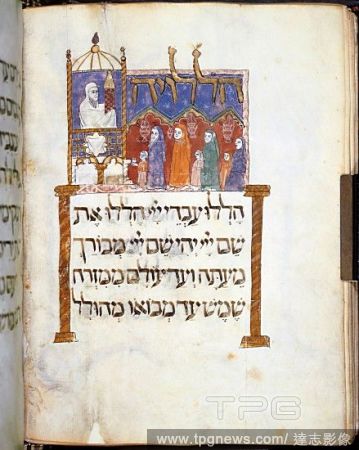 הללויה
הללו עבדי ייי הללו את
שם ייי יהי שם ייי מבורך
מעתה ועד עולם ממזרח
שמש עד מבואו מהולל
TPG
www.tpgnews.com/ 達志影像